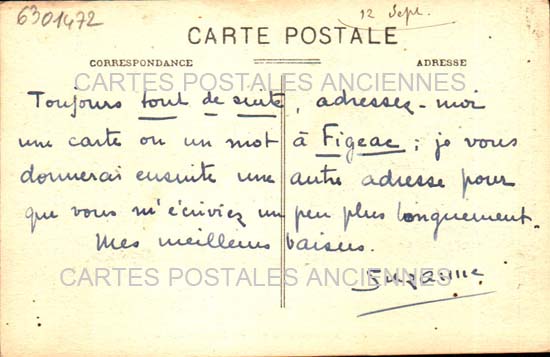 6301472
12 Sept.
CARTE POSTALE
CORRESPONDANCE ADRESSE
CARTES POSTALES ANCIENNES
Toujours tout de suite, adressez-moi
une carte ou un mot à Figeac ; je vous
donnerai ensuite une autre adresse pour
que vous m'écriviez un peu plus longuement.
Mes meilleurs baisers.
CARTES POSTALES ANCIENNES
Suzanne